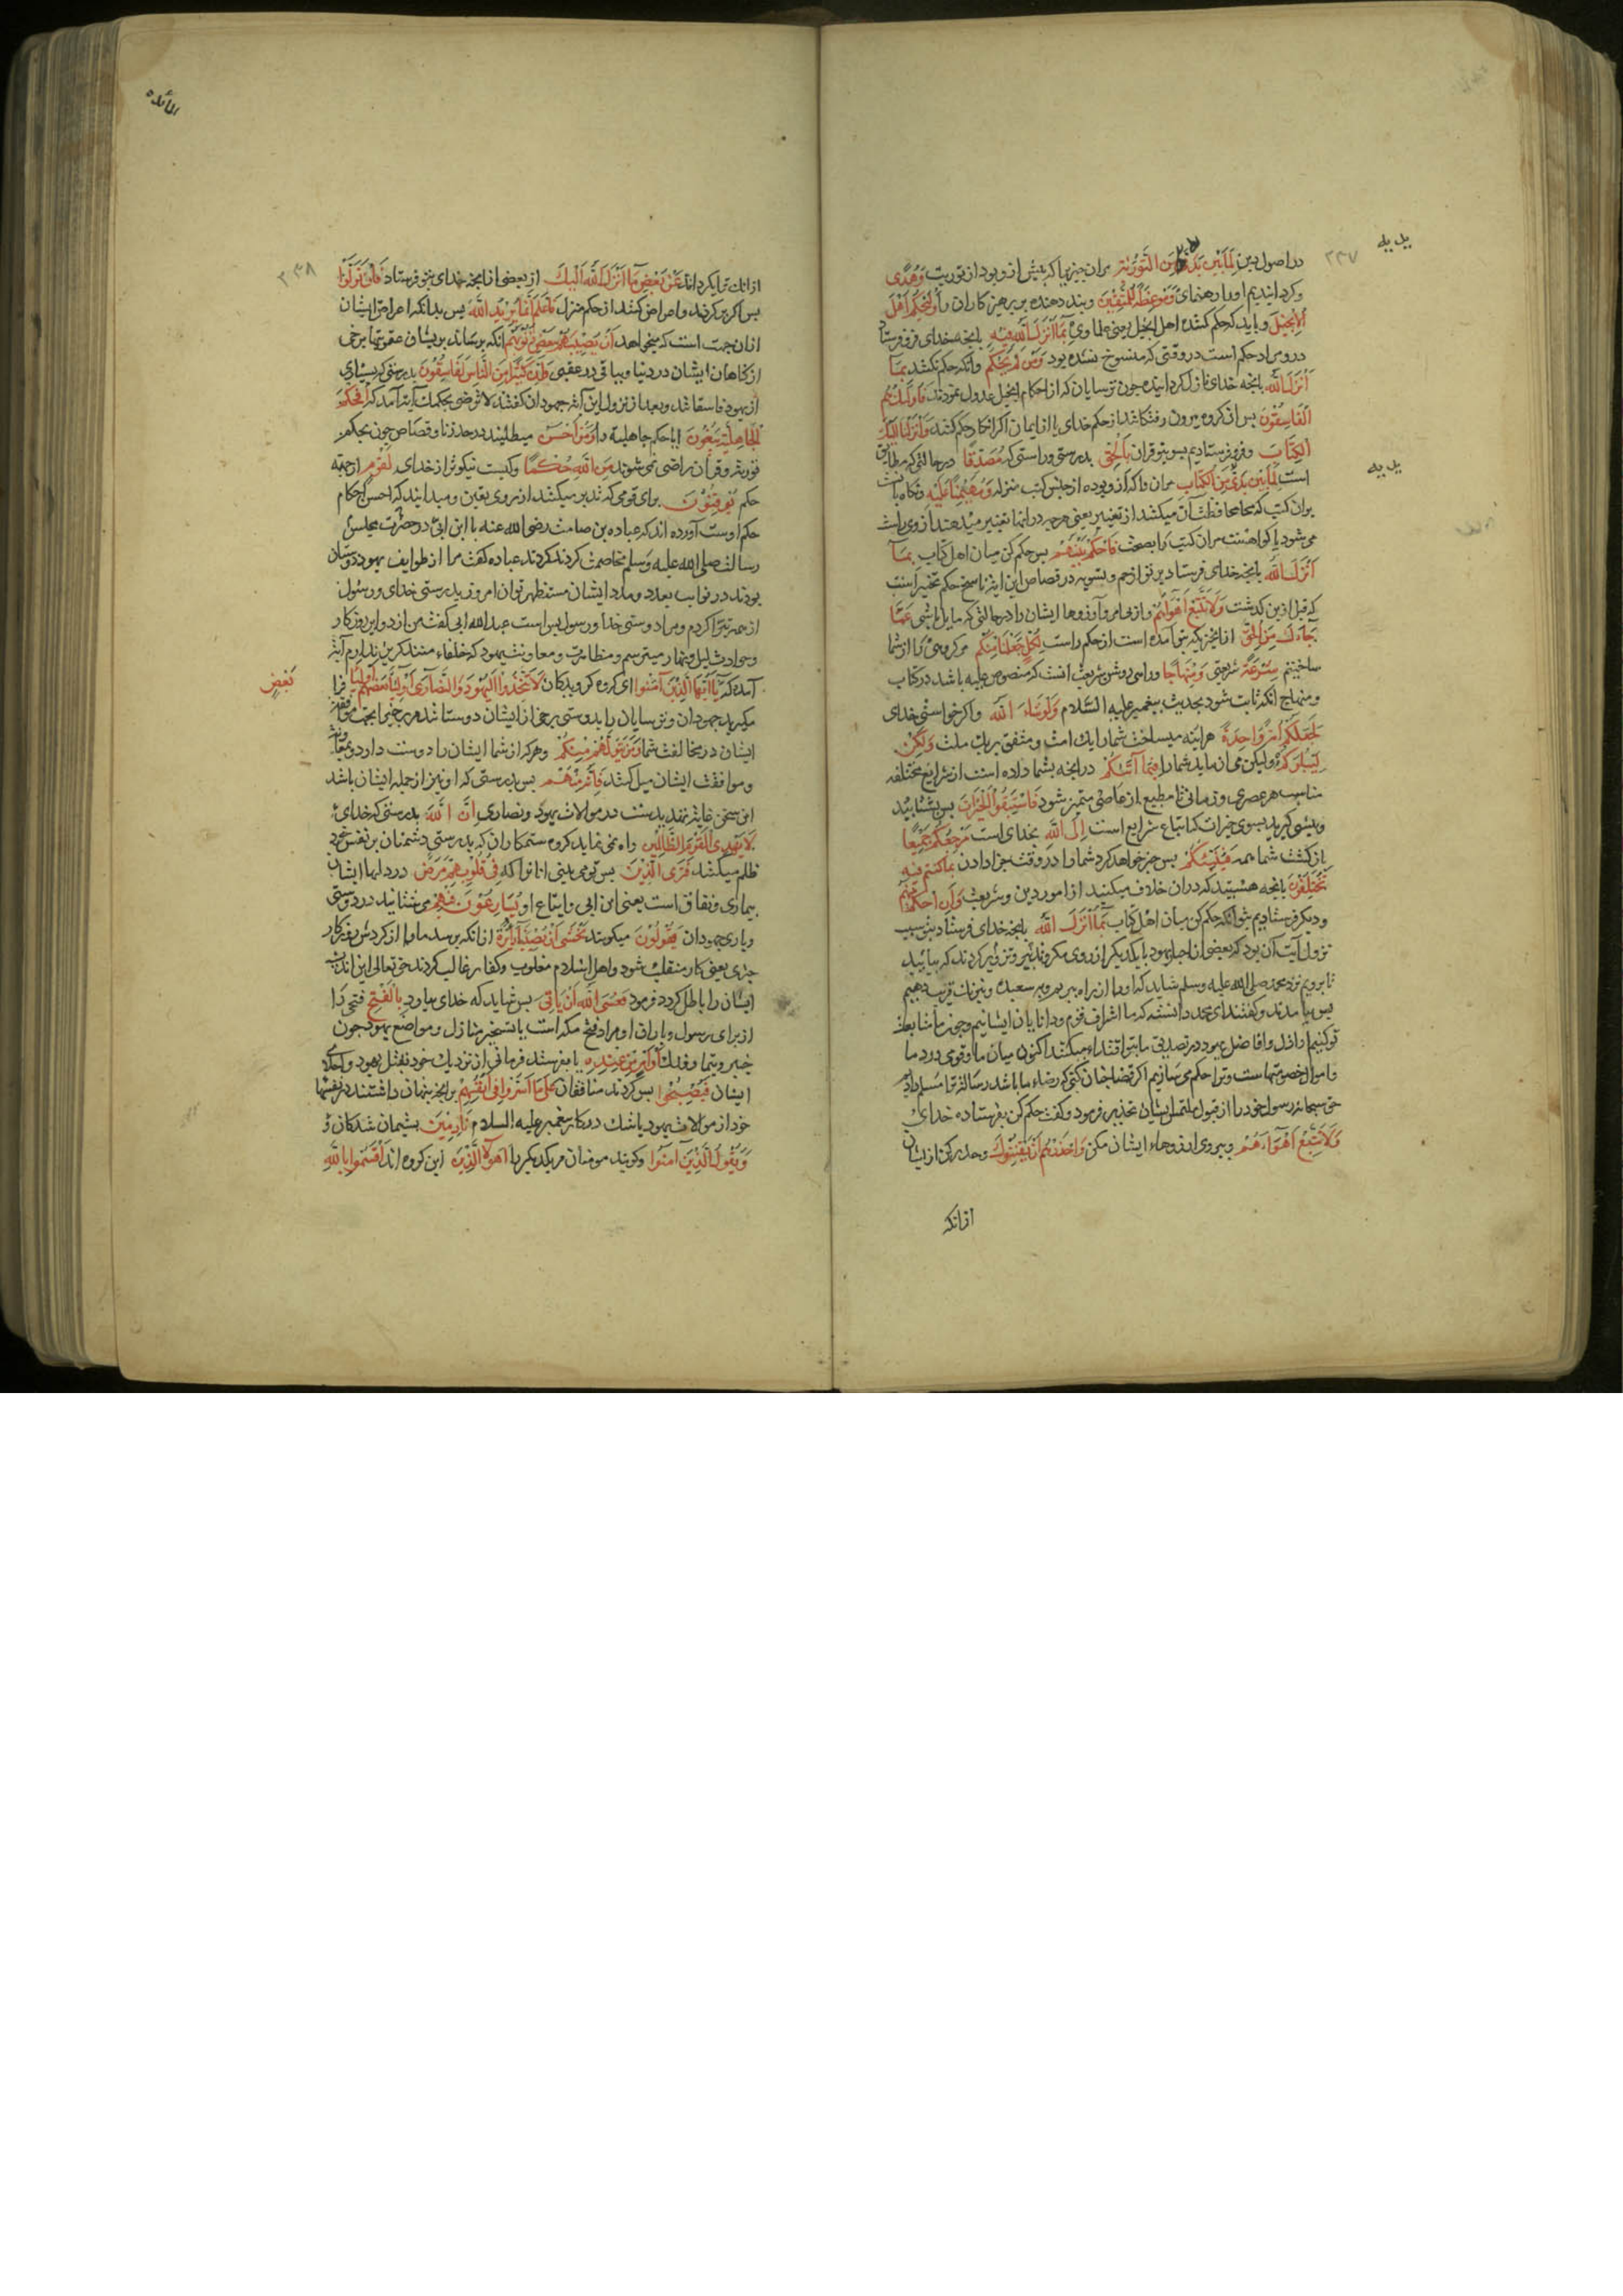 در اصول دین لِمَا بَيْنَ يَدَيْهِ مِنَ التَّوْرٰيةِ مران چیزیرا که پیش ازو بود از توریت وَهُدًى
و کردانیدیم او را رهنمای وَمَوْعِظَةً لِلْمُتَّقِينَ و پند دهنده بر پرهیزکاران را وَلْيَحْكُمْ اَهْلُ
الْاِنْجِيلِ و باید که حکم کنند اهل انجیل یعنی علماوی بِمَا اَنْزَلَ اللَّهُ فِيهِ بانچه خدای فرو فرستاد
درو مراد حکم است در وقتی که منسوخ نشده بود وَمَنْ لَمْ يَحْكُمْ وانکه حکم نکند بِمَا
اَنْزَلَ اللَّهُ بانچه خدای نازل کردانیده چون ترسایان که از احکام انجیل عدول نمودند فَاُولٰئِكَ هُمُ
الْفَاسِقُونَ پس ان کروه بیرون رفتکانند از حکم خدای یا از ایمان اکر انکار حکم کنند وَاَنْزَلْنَا اِلَيْكَ
الْكِتَابَ و فرو فرستادیم بسوی تو قران بِالْحَقِّ بدرستی و راستی که مُصَدِّقًا در حالتی که مطابق
است لِمَا بَيْنَ يَدَيْهِ مِنَ الْكِتَابِ مران را که ازو بوده از جنس کتب منزله وَمُهَيْمِنًا عَلَيْهِ و نکاه بانست
بران کتب که محافظت آن میکند از تغییر یعنی هرچه در انها تغییر میدهند از وی راست
می شود یا کواهست مران کتب را بصحت فَاحْكُمْ بَيْنَهُمْ پس حکم کن میان اهل کتاب بِمَا
اَنْزَلَ اللَّهُ بانچه خدای فرستاد بر تو از رجم و تسویه در قصاص این ایة ناسخ حکم تخییر است
که قبل ازین کذشت وَلَا تَتَّبِعْ اَهْوَاءَهُمْ و از پی مرو آرزوها ایشان را در حالتی که مایل باشی عَمَّا
جَاءَكَ مِنَ الْحَقِّ از انچیزیکه بتو آمده است از حکم راست لِكُلٍّ جَعَلْنَا مِنْكُمْ هر کروهی را از شما
ساختیم شِرْعَةً شریعتی وَمِنْهَاجًا و راهی روشن شریعت انست که منصوص علیه باشد در کتاب
و منهاج انکه ثابت شود بحدیث پیغمبر علیه السلام وَلَوْ شَاءَ اللَّهُ و اکر خواستی خدای
لَجَعَلَكُمْ اُمَّةً وَاحِدَةً هر اینه میساخت شما را یک امت و متفق بر یک ملت وَلٰكِنْ
لِيَبْلُوَكُمْ ولیکن می ازماید شما را فِيمَا اٰتٰيكُمْ در انچه بشما داده است از شرایع مختلفه
مناسب هر عصری و زمانی تا مطیع از عاصی متمیز شود فَاسْتَبِقُوا الْخَيْرَاتِ پس بشتابید
و پیشی کیرید بسوی خیرات که اتباع شرایع است اِلَى اللَّهِ بخدای است مَرْجِعُكُمْ جَمِيعًا
بازکشت شما همه فَيُنَبِّئُكُمْ پس خبر خواهد کرد شما را در وقت جزا دادن بِمَا كُنْتُمْ فِيهِ
تَخْتَلِفُونَ بانچه هستید که دران خلاف میکنید از امور دین و شریعت وَاَنِ احْكُمْ بَيْنَهُمْ
و دیکر فرستادیم بتو انکه حکم کن میان اهل کتاب بِمَا اَنْزَلَ اللَّهُ بانچه خدای فرستاد بتو سبب
نزول آیت آن بود که بعضی از احبار یهود با یکدیکر از روی مکر و تدبیر و تزویر کردند که بیایید
تا برویم نزد محمد صلی الله علیه وسلم شاید که او را از راه ببریم و فریب دهیم
پس بیامدند و کفتند ای محمد دانسته که ما اشراف قوم و دانایان ایشانیم و چون ما متابعت
تو کنیم اراذل و افاضل یهود در تصدیق ما بتو اقتداء میکنند اکنون میان ما و قومی در دما
و اموال خصومتهاست و ترا حکم می سازیم اکر قضا چنان کنی که رضاء ما باشد رسالت ترا مسلم داریم
حق سبحانه رسول خود را از قبول ملتمس ایشان تحذیر فرمود و کفت حکم کن بفرستاده خدای
وَلَا تَتَّبِعْ اَهْوَاءَهُمْ و پیروی ارزوهاء ایشان مکن وَاحْذَرْهُمْ اَنْ يَفْتِنُوكَ و حذر کن از ایشان
ازانکه
یدیه
یدیه
٢٣٧
المائده
٢٣٨
ازانکه ترا بکردانند عَنْ بَعْضِ مَا اَنْزَلَ اللَّهُ اِلَيْكَ از بعضی از انچه خدای بتو فرستاد فَاِنْ تَوَلَّوْا
پس اکر برکردند و اعراض کنند از حکم منزل فَاعْلَمْ اَنَّمَا يُرِيدُ اللَّهُ پس بدانکه اعراض ایشان
ازان جهت است که میخواهد اَنْ يُصِيبَهُمْ بِبَعْضِ ذُنُوبِهِمْ انکه برساند بریشان عقوبتها برخی
از کناهان ایشان در دنیا و باقی در عقبی وَاِنَّ كَثِيرًا مِنَ النَّاسِ لَفَاسِقُونَ بدرستی که بسیاری
از یهود فاسقانند و بعد از نزول این آیة جهودان کفتند لا نرضی بحکمک آیة آمد که اَفَحُكْمَ
الْجَاهِلِيَّةِ يَبْغُونَ ایا حکم جاهلیة را وَمَنْ اَحْسَنُ میطلبند در حد زنا و قصاص چون بحکم
توریة و قران راضی نمی شوند مِنَ اللَّهِ حُكْمًا و کیست نیکوتر از خدای لِقَوْمٍ از جهة
حکم يُوقِنُونَ برای قومی که تدبر میکنند از روی یقین و میدانند که احسن احکام
حکم اوست آورده اند که عباده بن صامت رضی الله عنه با ابن ابی در حضرت مجلس
رسالت صلی الله علیه وسلم مخاصمت کردند عباده کفت مرا از طوایف یهود دوستان
بودند در نوایب بعدد و مدد ایشان مستظهر توان امروز بدرستی خدای و رسول
از همه تبرا کردم و مرا دوستی خدا و رسول بس است عبدالله ابی کفت من از دوایر روزکار
و حوادث لیل و نهار میترسم و مظاهرت و معاونت یهود که خلفاء منند کریز ندارم آیة
آمده که يَا اَيُّهَا الَّذِينَ اٰمَنُوا ای کروه کرویدکان لَا تَتَّخِذُوا الْيَهُودَ وَالنَّصَارٰى اَوْلِيَاءَ بَعْضُهُمْ اَوْلِيَاءُ فرا
بَعْضٍ
مکیرید جهودان و ترسایان را بدوستی برخی از ایشان دوستانند مر برخی را بجهت موافقت
ایشان در مخالفت شما وَمَنْ يَتَوَلَّهُمْ مِنْكُمْ و هر که از شما ایشان را دوست دارد و بمعاونت
و موافقت ایشان میل کند فَاِنَّهُ مِنْهُمْ پس بدرستی که او نیز از جمله ایشان باشد
این سخن غایة تهدیدست در موالات یهود و نصاری اِنَّ اللَّهَ بدرستی که خدای
لَا يَهْدِي الْقَوْمَ الظَّالِمِينَ راه نمی نماید کروه ستمکاران که بدرستی دشمنان بر نفس خود
ظلم میکنند فَتَرَى الَّذِينَ پس تو می بینی انانرا که فِي قُلُوبِهِمْ مَرَضٌ در دلها ایشان
بیماری و نفاق است یعنی ابن ابی و اتباع او يُسَارِعُونَ فِيهِمْ می شتابند در دوستی
و یاری جهودان يَقُولُونَ میکویند نَخْشٰى اَنْ تُصِيبَنَا دَائِرَةٌ ازانکه برسد ما را از کردش روزکار
چیزی یعنی کار منقلب شود و اهل اسلام مغلوب و کفار غالب کردند حق تعالی این اندیشه
ایشان را باطل کرد و فرمود فَعَسَى اللَّهُ اَنْ يَاْتِيَ پس شاید که خدای بیاورد بِالْفَتْحِ فتحی را
از برای رسول و یاران او مراد فتح مکه است یا تسخیر منازل و مواضع یهود چون
خیبر و تیما و فدک اَوْ اَمْرٍ مِنْ عِنْدِهِ یا بفرستد فرمانی از نزدیک خود بقتل یهود و اجلای
ایشان فَيُصْبِحُوا پس کردند منافقان عَلٰى مَا اَسَرُّوا فِي اَنْفُسِهِمْ برانچه پنهان داشتند در نفسها
خود از موالات یهود یا شک در کار پیغمبر علیه السلام نَادِمِينَ پشیمان شدکان
وَيَقُولُ الَّذِينَ اٰمَنُوا و کویند مومنان مر یکدیکر را اَهٰؤُلَاءِ الَّذِينَ این کروه اند اَقْسَمُوا بِاللَّهِ